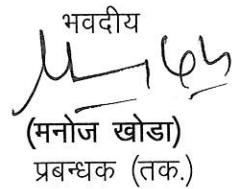 भवदीय
(मनोज खोडा)
प्रबन्धक (तक.)